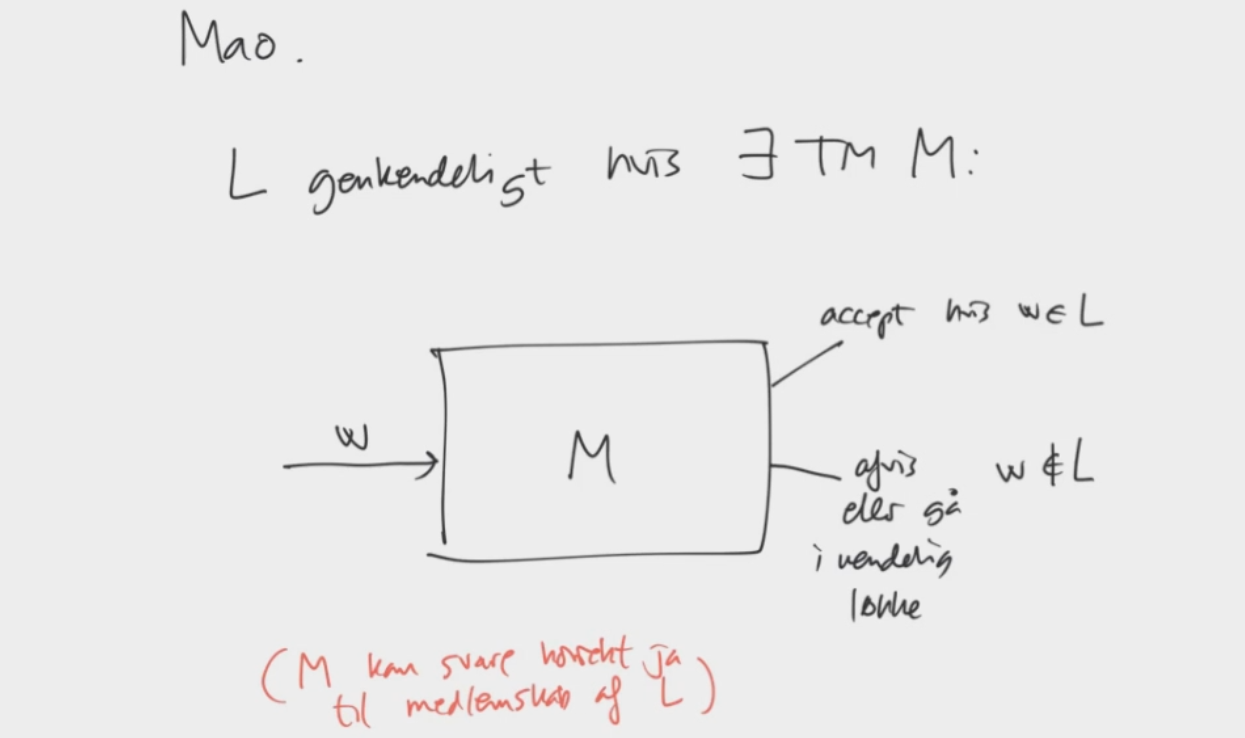 Mao.
L genkendeligt hvis ∃ TM M:
accept hvis w ∈ L
w
M
afvis w ∉ L
eller gå
i uendelig
løkke
(M kan svare korrekt ja
til medlemskab af L)